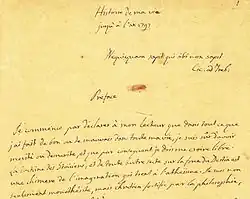 Histoire de ma vie
jusqu'à l'an 1797
Nequicquam sapit qui sibi non sapit
Cic. ad Treb.
Preface
Je commence par déclarer à mon lecteur que dans tout ce que
j'ai fait de bon ou de mauvais dans toute ma vie, je suis sûr d'avoir
merité ou demerité, et que par consequent je dois me croire libre.
La doctrine des Stoïciens, et de toute autre secte sur la force du Destin est
une chimere de l'imagination qui tient à l'atheisme. Je suis non
seulement monotheiste, mais chretien fortifié par la philosophie,